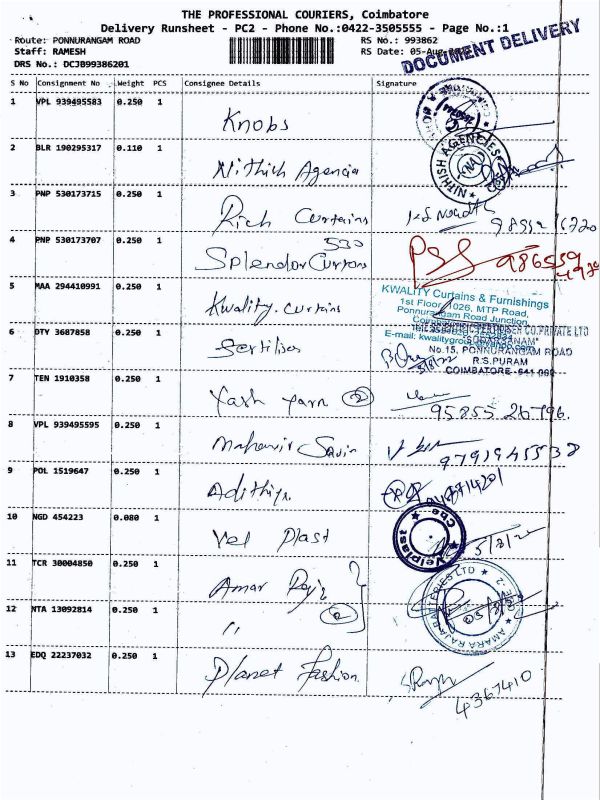 THE PROFESSIONAL COURIERS, Coimbatore
Delivery Runsheet - PC2 - Phone No.:0422-3505555 - Page No.:1
Route: PONNURANGAM ROAD
RS No.: 993862
Staff: RAMESH
RS Date: 05-Aug
DRS No.: DCJB99386201
DOCUMENT DELIVERY
S No Consignment No Weight PCS Consignee Details Signature
1 VPL 939495583 0.250 1 Knobs
2 BLR 190295317 0.110 1 Nithish Agencia
NITHISH AGENCIES
CBE
3 PNP 530173715 0.250 1 Rich Curtains
4 PNP 530173707 0.250 1 Splendor Curtons
530
5 MAA 294410991 0.250 1 Kwality. curtains
KWALITY Curtains & Furnishings
1st Floor, 1026, MTP Road,
Ponnurangam Road Junction,
6 DTY 3687858 0.250 1
CO.PRIVATE LTD
No.15, PONNURANGAM ROAD
R.S.PURAM
COIMBATORE-641 002
7 TEN 1910358 0.250 1 Yash yarn 2
95855 26796.
8 VPL 939495595 0.250 1 Mahavir
9791945538
9 POL 1519647 0.250 1 Adithiya
10 NGD 454223 0.080 1 Vel Plast
Velplast
Cbe
5/8/22
11 TCR 30004850 0.250 1 Amar Raja
12 NTA 13092814 0.250 1 " 2
AMARA RAJA BATTERIES LTD
05/8/22
13 EDQ 22237032 0.250 1 Planet Fashion
4367410